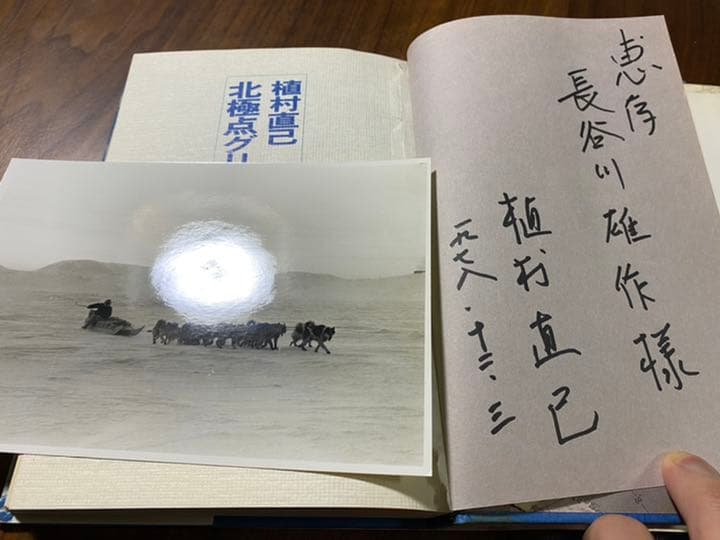 恵存
長谷川雄作様
植村直己
一九七八・十二・三
植村直己
北極点グリ